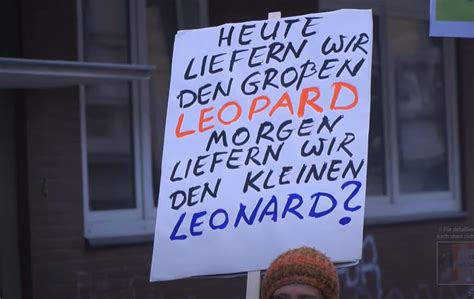 HEUTE
LIEFERN WIR
DEN GROẞEN
LEOPARD
MORGEN
LIEFERN WIR
DEN KLEINEN
LEONARD?